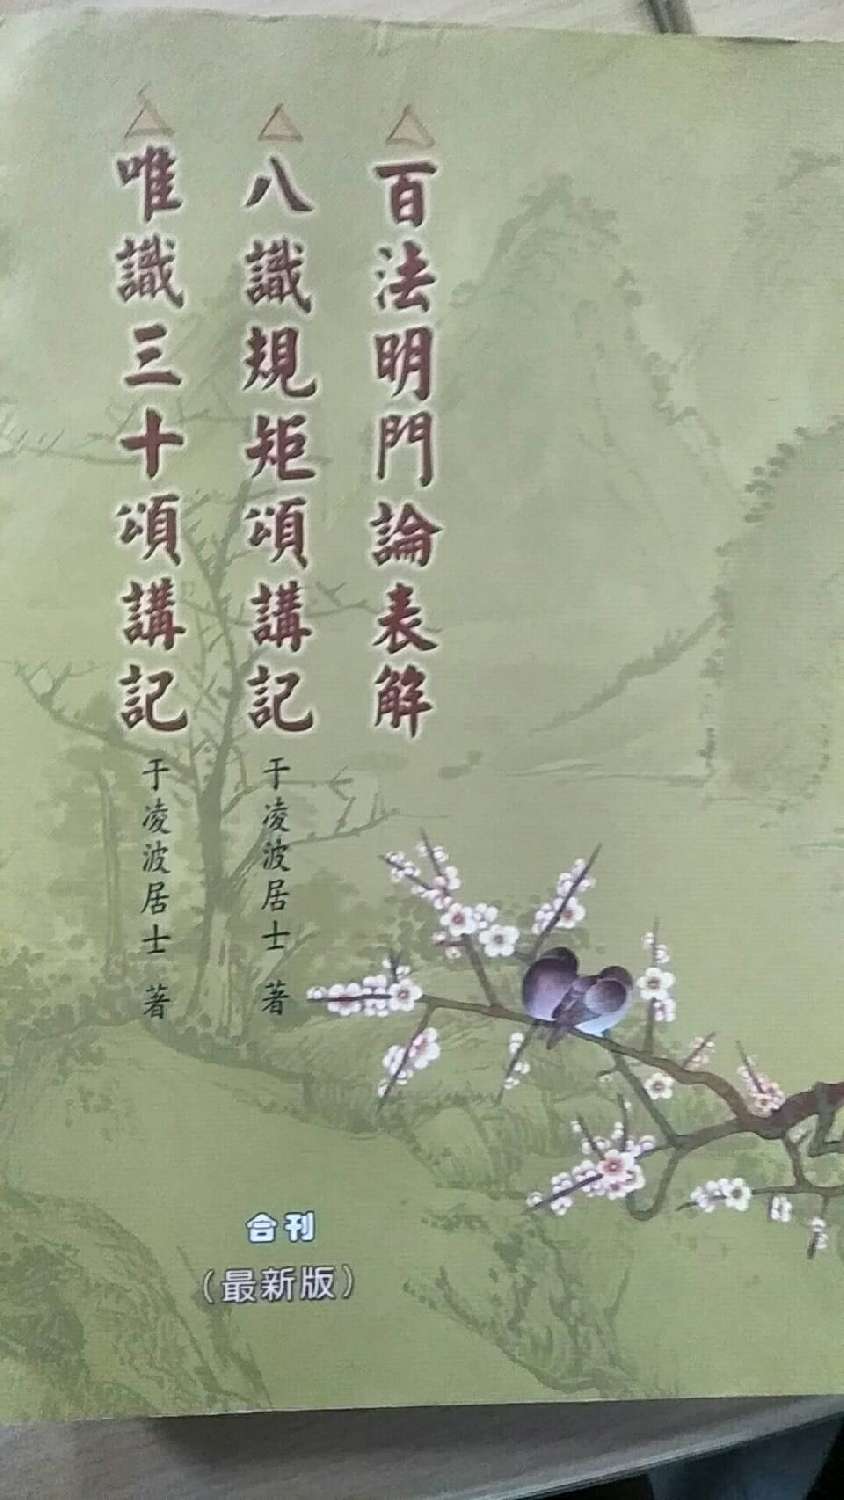 百法明門論表解
八識規矩頌講記
于凌波居士 著
唯識三十頌講記
于凌波居士 著
合刊
（最新版）